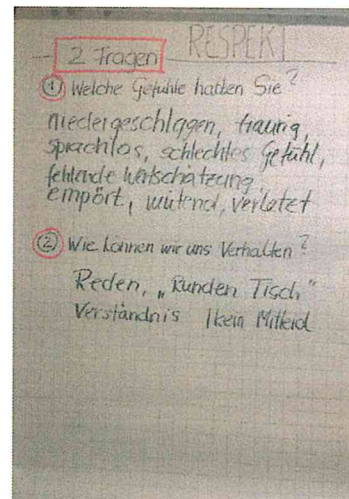 RESPEKT
2 Fragen
① Welche Gefühle hatten Sie?
niedergeschlagen, traurig,
sprachlos, schlechtes Gefühl,
fehlende Wertschätzung,
empört, wütend, verletzt
② Wie können wir uns Verhalten?
Reden, „Runden Tisch"
Verständnis / kein Mitleid